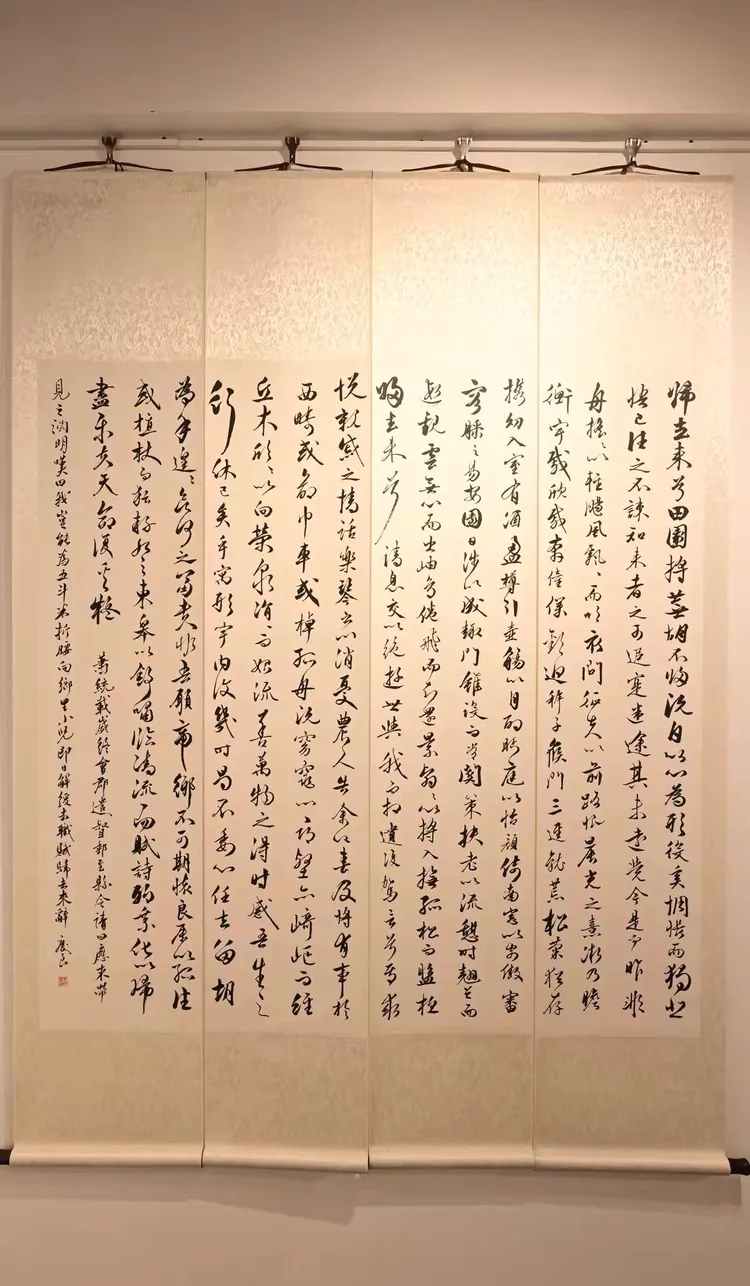 歸去來兮田園將蕪胡不歸既自以心為形役奚惆悵而獨悲
悟已往之不諫知來者之可追寔迷途其未遠覺今是而昨非
舟搖搖以輕颺風飄飄而吹衣問征夫以前路恨晨光之熹微乃瞻
衡宇載欣載奔僮僕歡迎稚子候門三逕就荒松菊猶存
攜幼入室有酒盈樽引壺觴以自酌眄庭以怡顏倚南窗以寄傲審
容膝之易安園日涉以成趣門雖設而常関策扶老以流憩時翹首而
遐觀雲無心而出岫鳥倦飛而知還景翳翳以將入撫孤松而盤桓
歸去來兮請息交以絕遊世與我而相遺復駕言兮焉求
悅親戚之情話樂琴書以消憂農人告余以春及將有事於
西疇或命巾車或棹孤舟既窈窕以尋壑亦崎嶇而經
丘木欣欣以向榮泉涓涓而始流善萬物之得時感吾生之
行休已矣乎寓形宇內復幾時曷不委心任去留胡
為乎遑遑欲何之富貴非吾願帝鄉不可期懷良辰以孤往
或植杖而耘耔登東皋以舒嘯臨清流而賦詩聊乘化以歸
盡樂夫天命復奚疑 蕭統載歲終會郡遣督郵至縣吏請曰應束帶
見之淵明嘆曰我豈能為五斗米折腰向鄉里小兒即日解綬去職賦歸去來辭 慶良